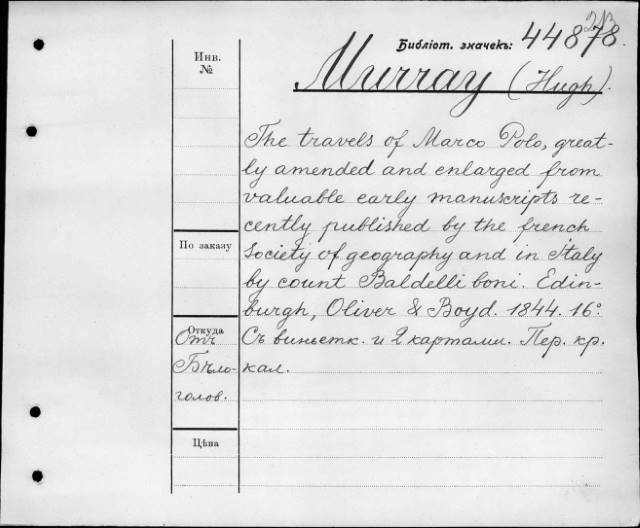 Библіот. значекъ: 44878.
Инв.
№
Murray (Hugh).
The travels of Marco Polo, great-
ly amended and enlarged from
valuable early manuscripts re-
cently published by the french
Society of geography and in Italy
by count Baldelli boni. Edin-
burgh, Oliver & Boyd. 1844. 16°
Съ виньетк. и 2 картами. Пер. кр.
кал.
По заказу
Откуда
Отъ
Бѣло-
голов.
Цѣна